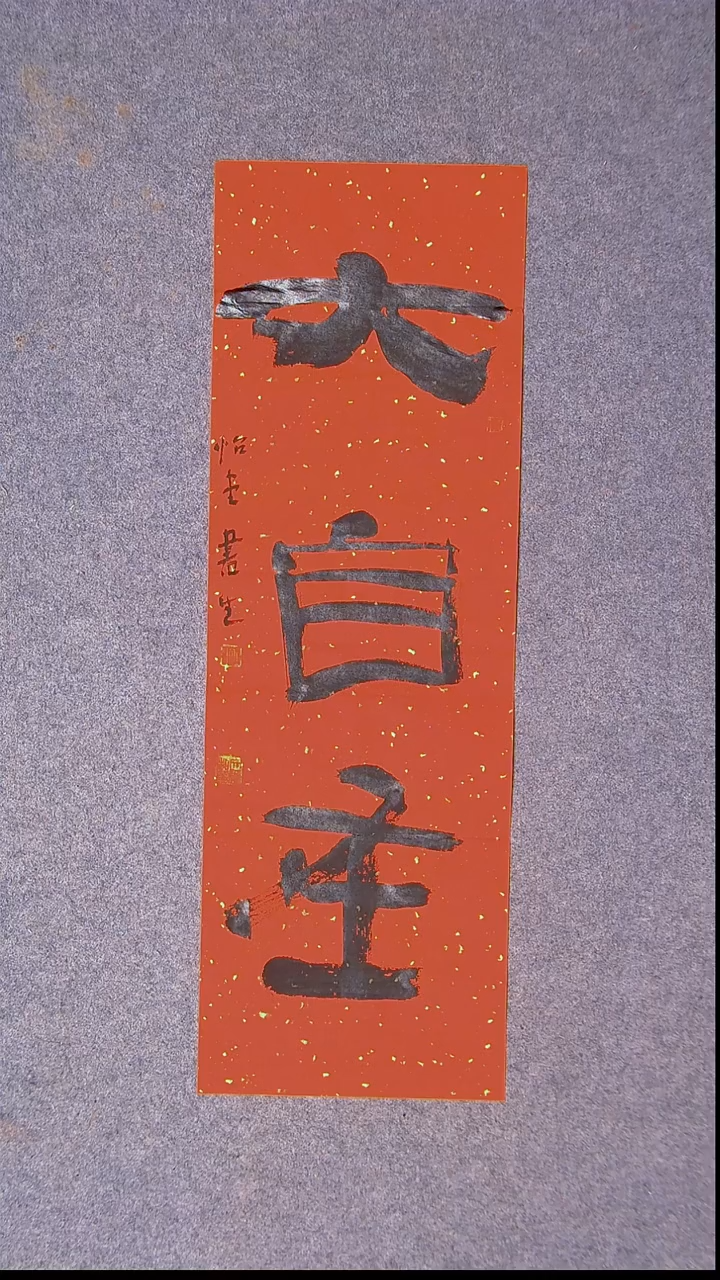 大自在
怡書生